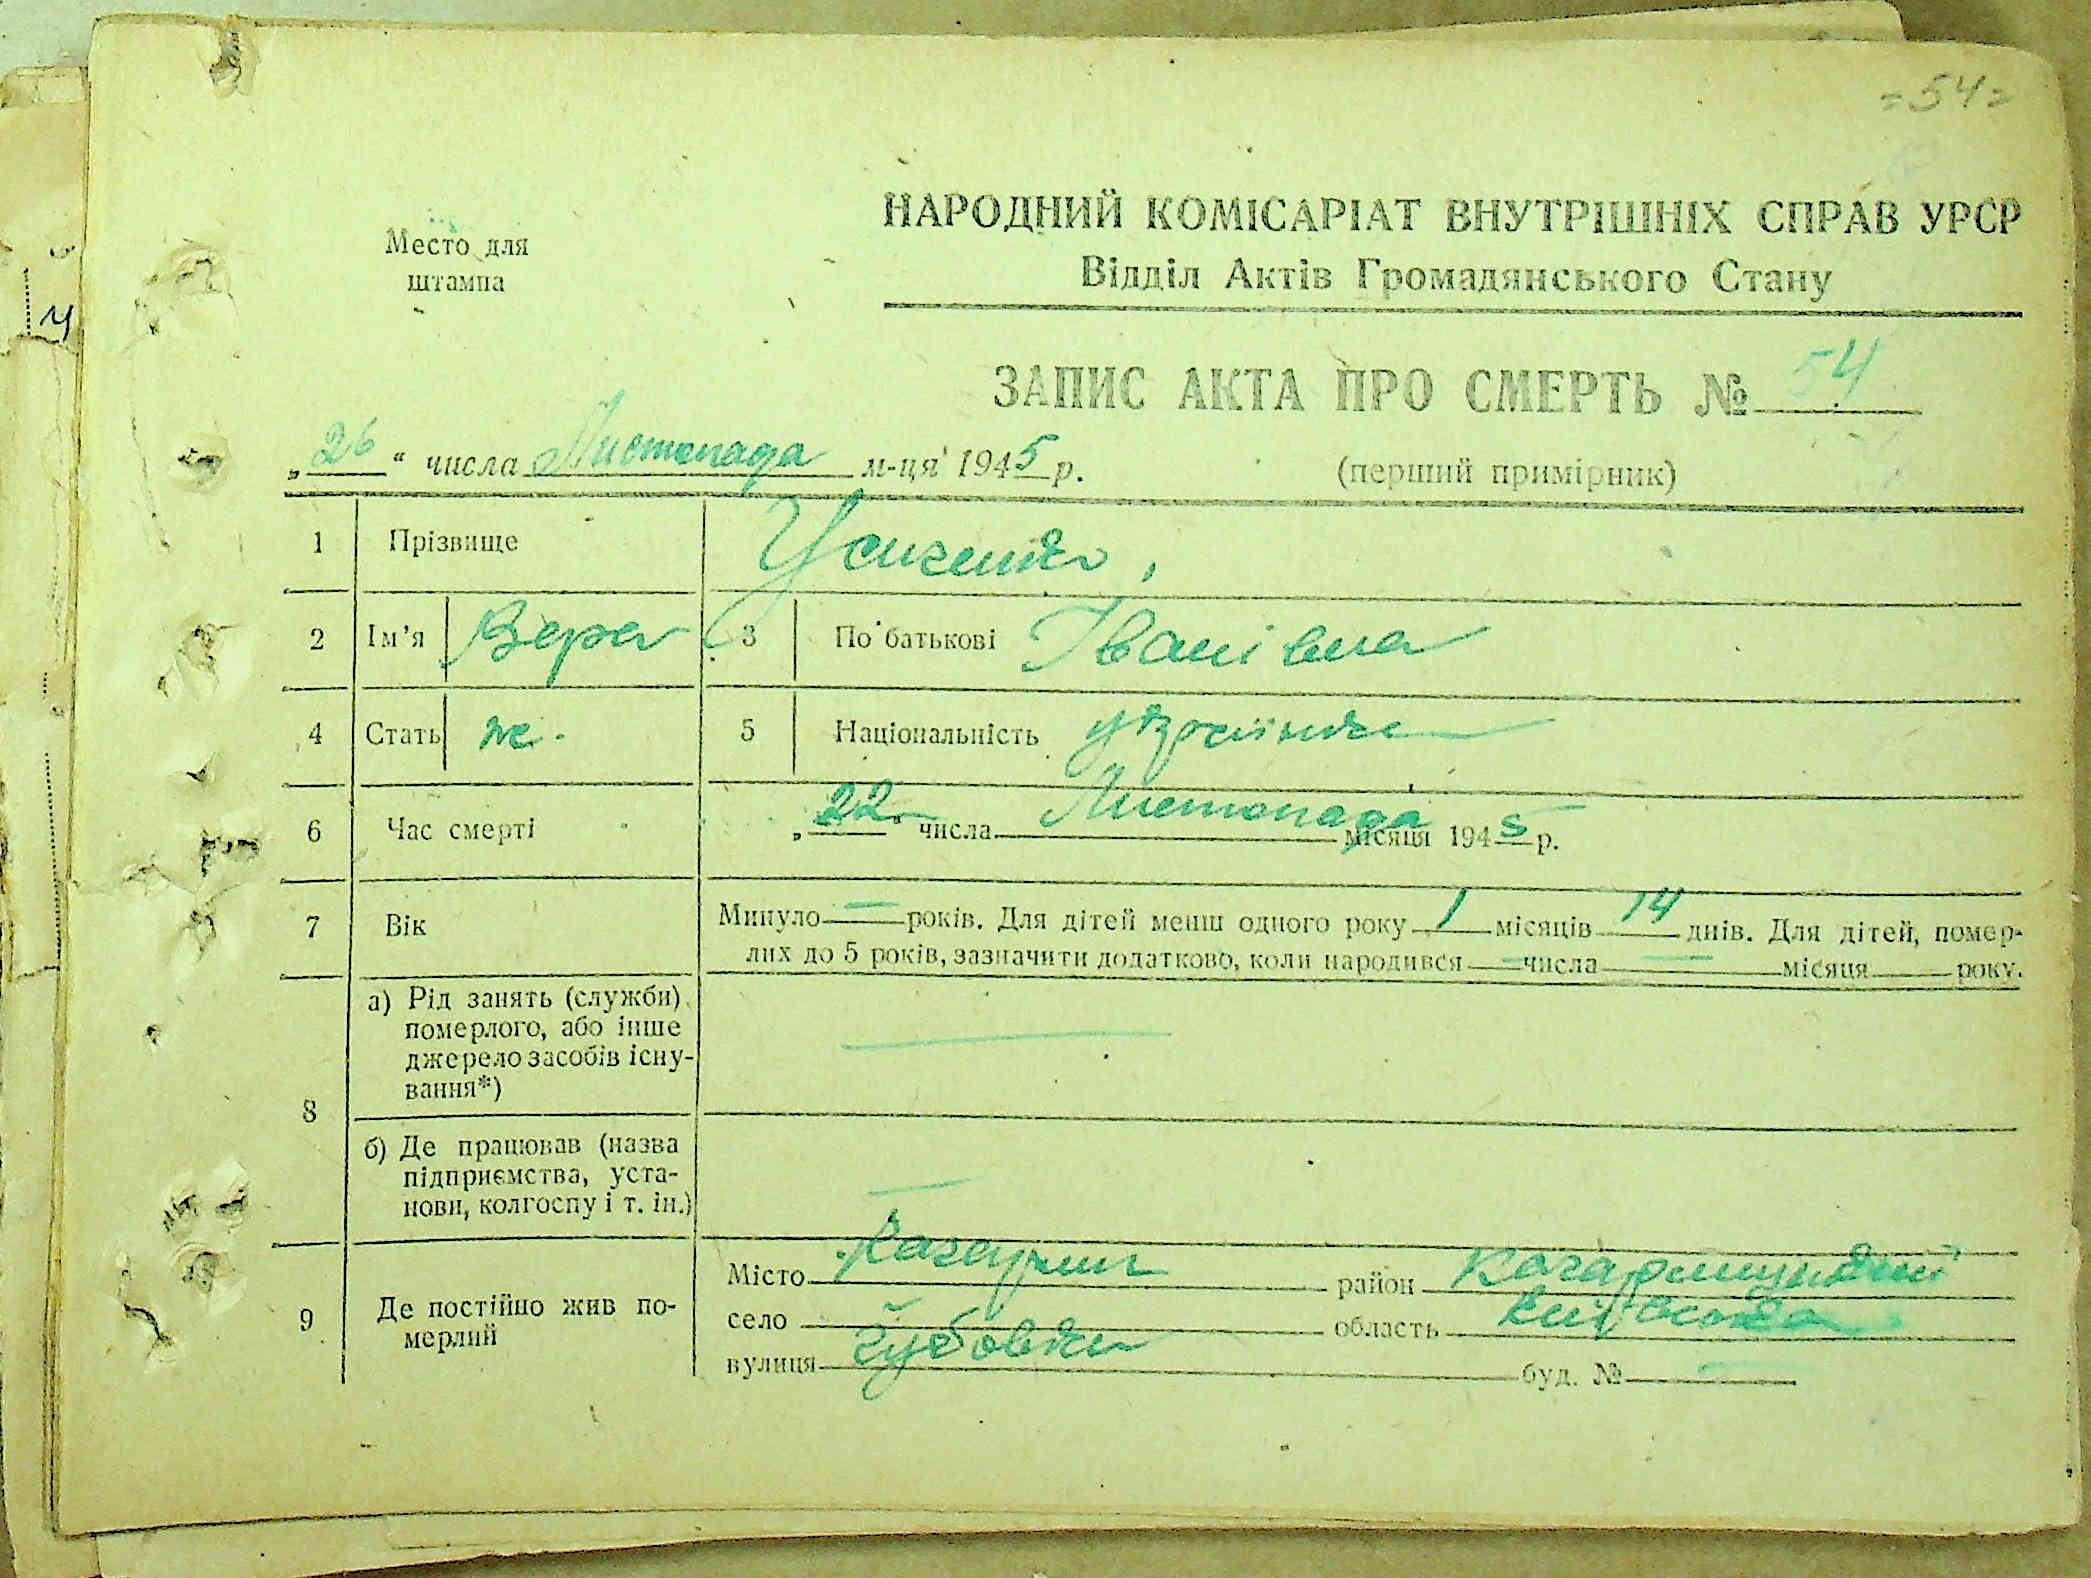 =54=
Место для
штампа
НАРОДНИЙ КОМІСАРІАТ ВНУТРІШНІХ СПРАВ УРСР
Відділ Актів Громадянського Стану
ЗАПИС АКТА ПРО СМЕРТЬ № 54
„26“ числа Листопада м-ця 1945 р.
(перший примірник)
1 Прізвище Усиченко,
2 Ім’я Вера 3 По батькові Іванівна
4 Стать же. 5 Національність українка
6 Час смерті „22“ числа Листопада місяця 1945 р.
7 Вік Минуло — років. Для дітей менш одного року 1 місяців 14 днів. Для дітей, помер-
лих до 5 років, зазначити додатково, коли народився — числа — місяця року.
8 а) Рід занять (служби)
померлого, або інше
джерело засобів існу-
вання*) —
б) Де працював (назва
підприємства, уста-
нови, колгоспу і т. ін.) —
9 Де постійно жив по-
мерлий
Місто район
село область Київська
вулиця буд. № —